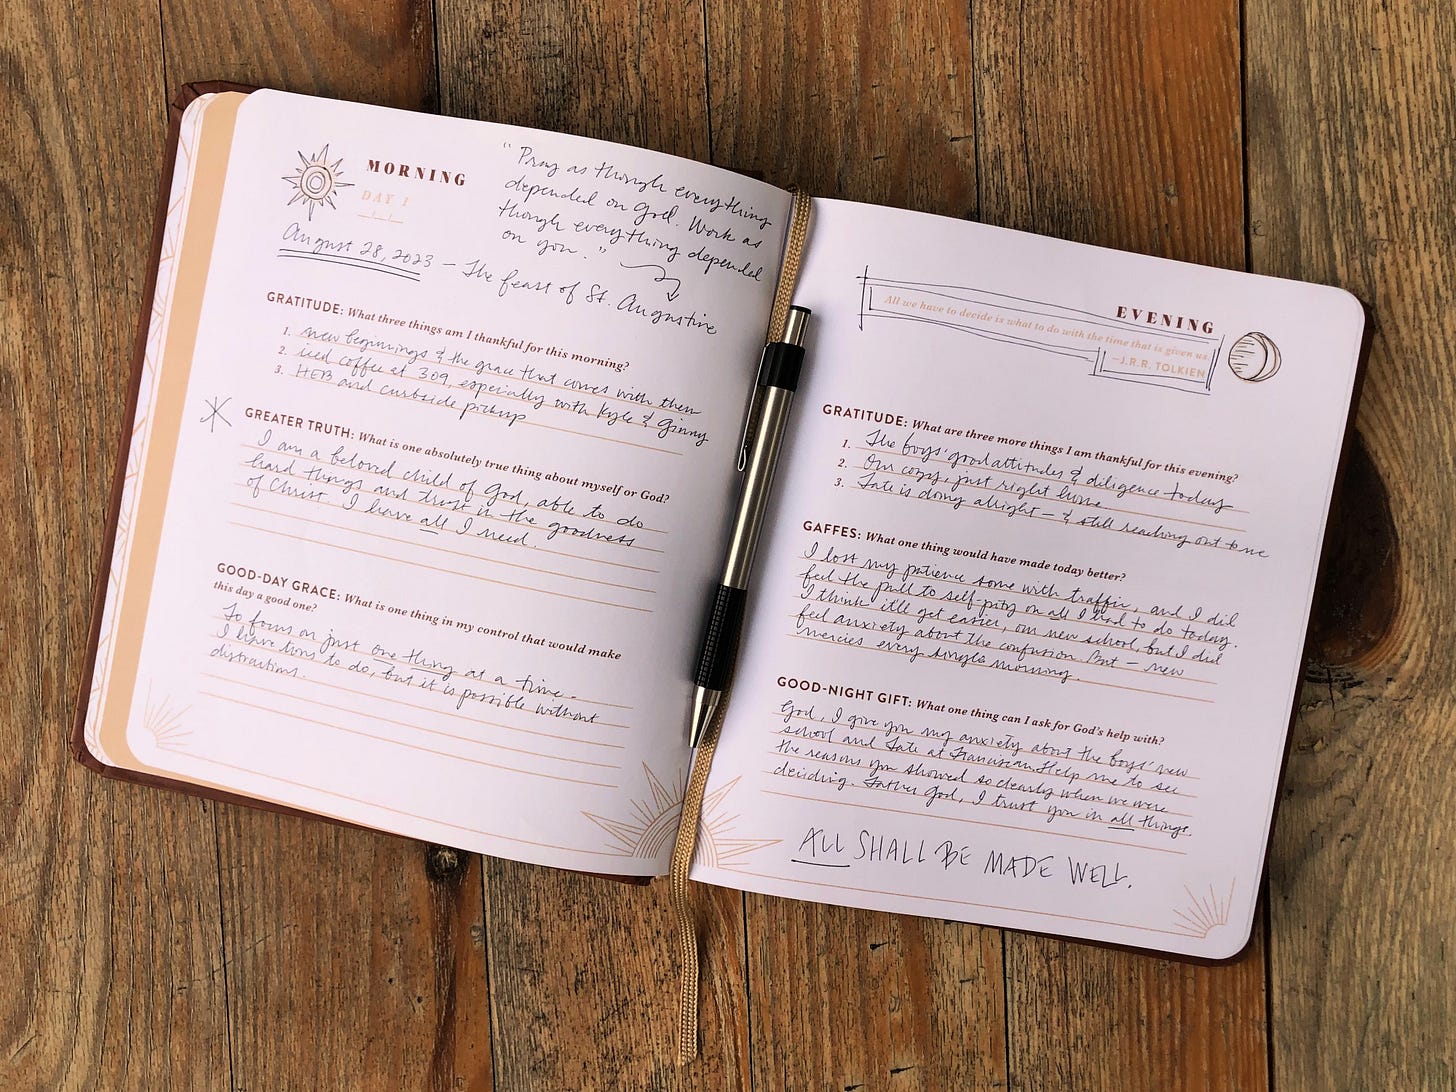 MORNING
DAY 1
"Pray as though everything
depended on God. Work as
though everything depended
on you."
August 28, 2023 – The feast of St. Augustine
GRATITUDE: What three things am I thankful for this morning?
1. new beginnings & the grace that comes with them
2. iced coffee at 309, especially with Kyle & Ginny
3. HEB and curbside pickup
GREATER TRUTH: What is one absolutely true thing about myself or God?
I am a beloved child of God, able to do
hard things and trust in the goodness
of Christ. I have all I need.
GOOD-DAY GRACE: What is one thing in my control that would make
this day a good one?
To focus on just one thing at a time.
I have tons to do, but it is possible without
distractions.
EVENING
All we have to decide is what to do with the time that is given us.
—J.R.R. TOLKIEN
GRATITUDE: What are three more things I am thankful for this evening?
1. The boys' good attitudes & diligence today
2. Our cozy, just right home.
3. Tate is doing alright – & still reaching out to me
GAFFES: What one thing would have made today better?
I lost my patience some with traffic, and I did
feel the pull to self pity on all I had to do today.
I think it'll get easier, our new school, but I did
feel anxiety about the confusion. But – new
mercies every single morning.
GOOD-NIGHT GIFT: What one thing can I ask for God's help with?
God, I give you my anxiety about the boys' new
school and Tate at Franciscan. Help me to see
the reasons you showed so clearly when we were
deciding. Father God, I trust you in all things.
ALL SHALL BE MADE WELL.